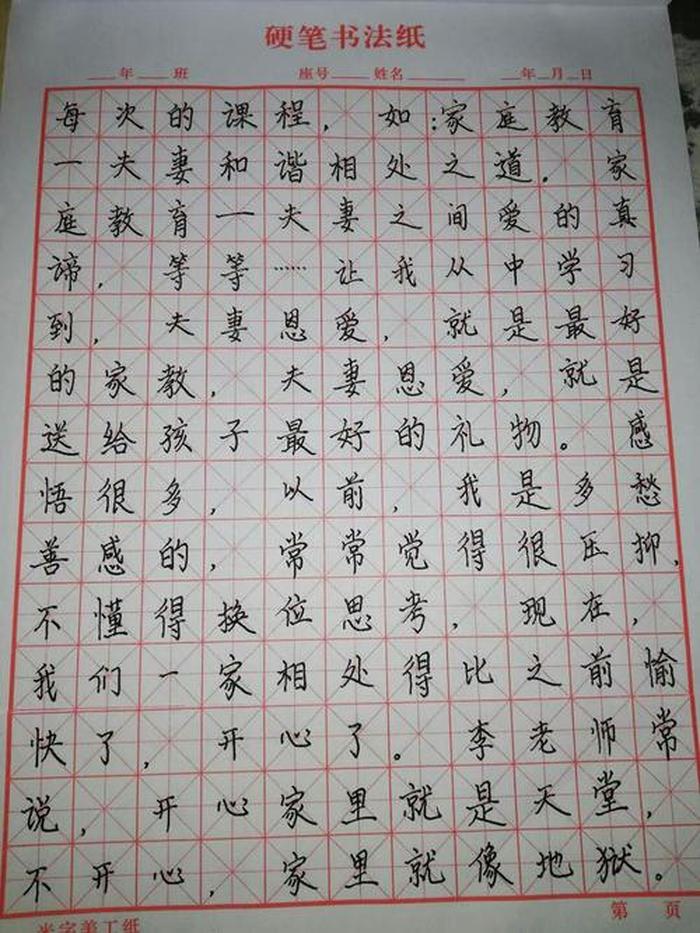 硬笔书法纸
年 班 座号 姓名 年 月 日
每次的课程，如：家庭教育
一夫妻和谐相处之道。家
庭教育一夫妻之间爱的真
谛，等等……让我从中学习
到，夫妻恩爱，就是最好
的家教，夫妻恩爱，就是
送给孩子最好的礼物。感
悟很多，以前，我是多愁
善感的，常常觉得很压抑，
不懂得换位思考，现在，
我们一家相处得比之前愉
快了，开心了。李老师常
说，开心家里就是天堂，
不开心，家里就像地狱。
米字美工纸 第 页